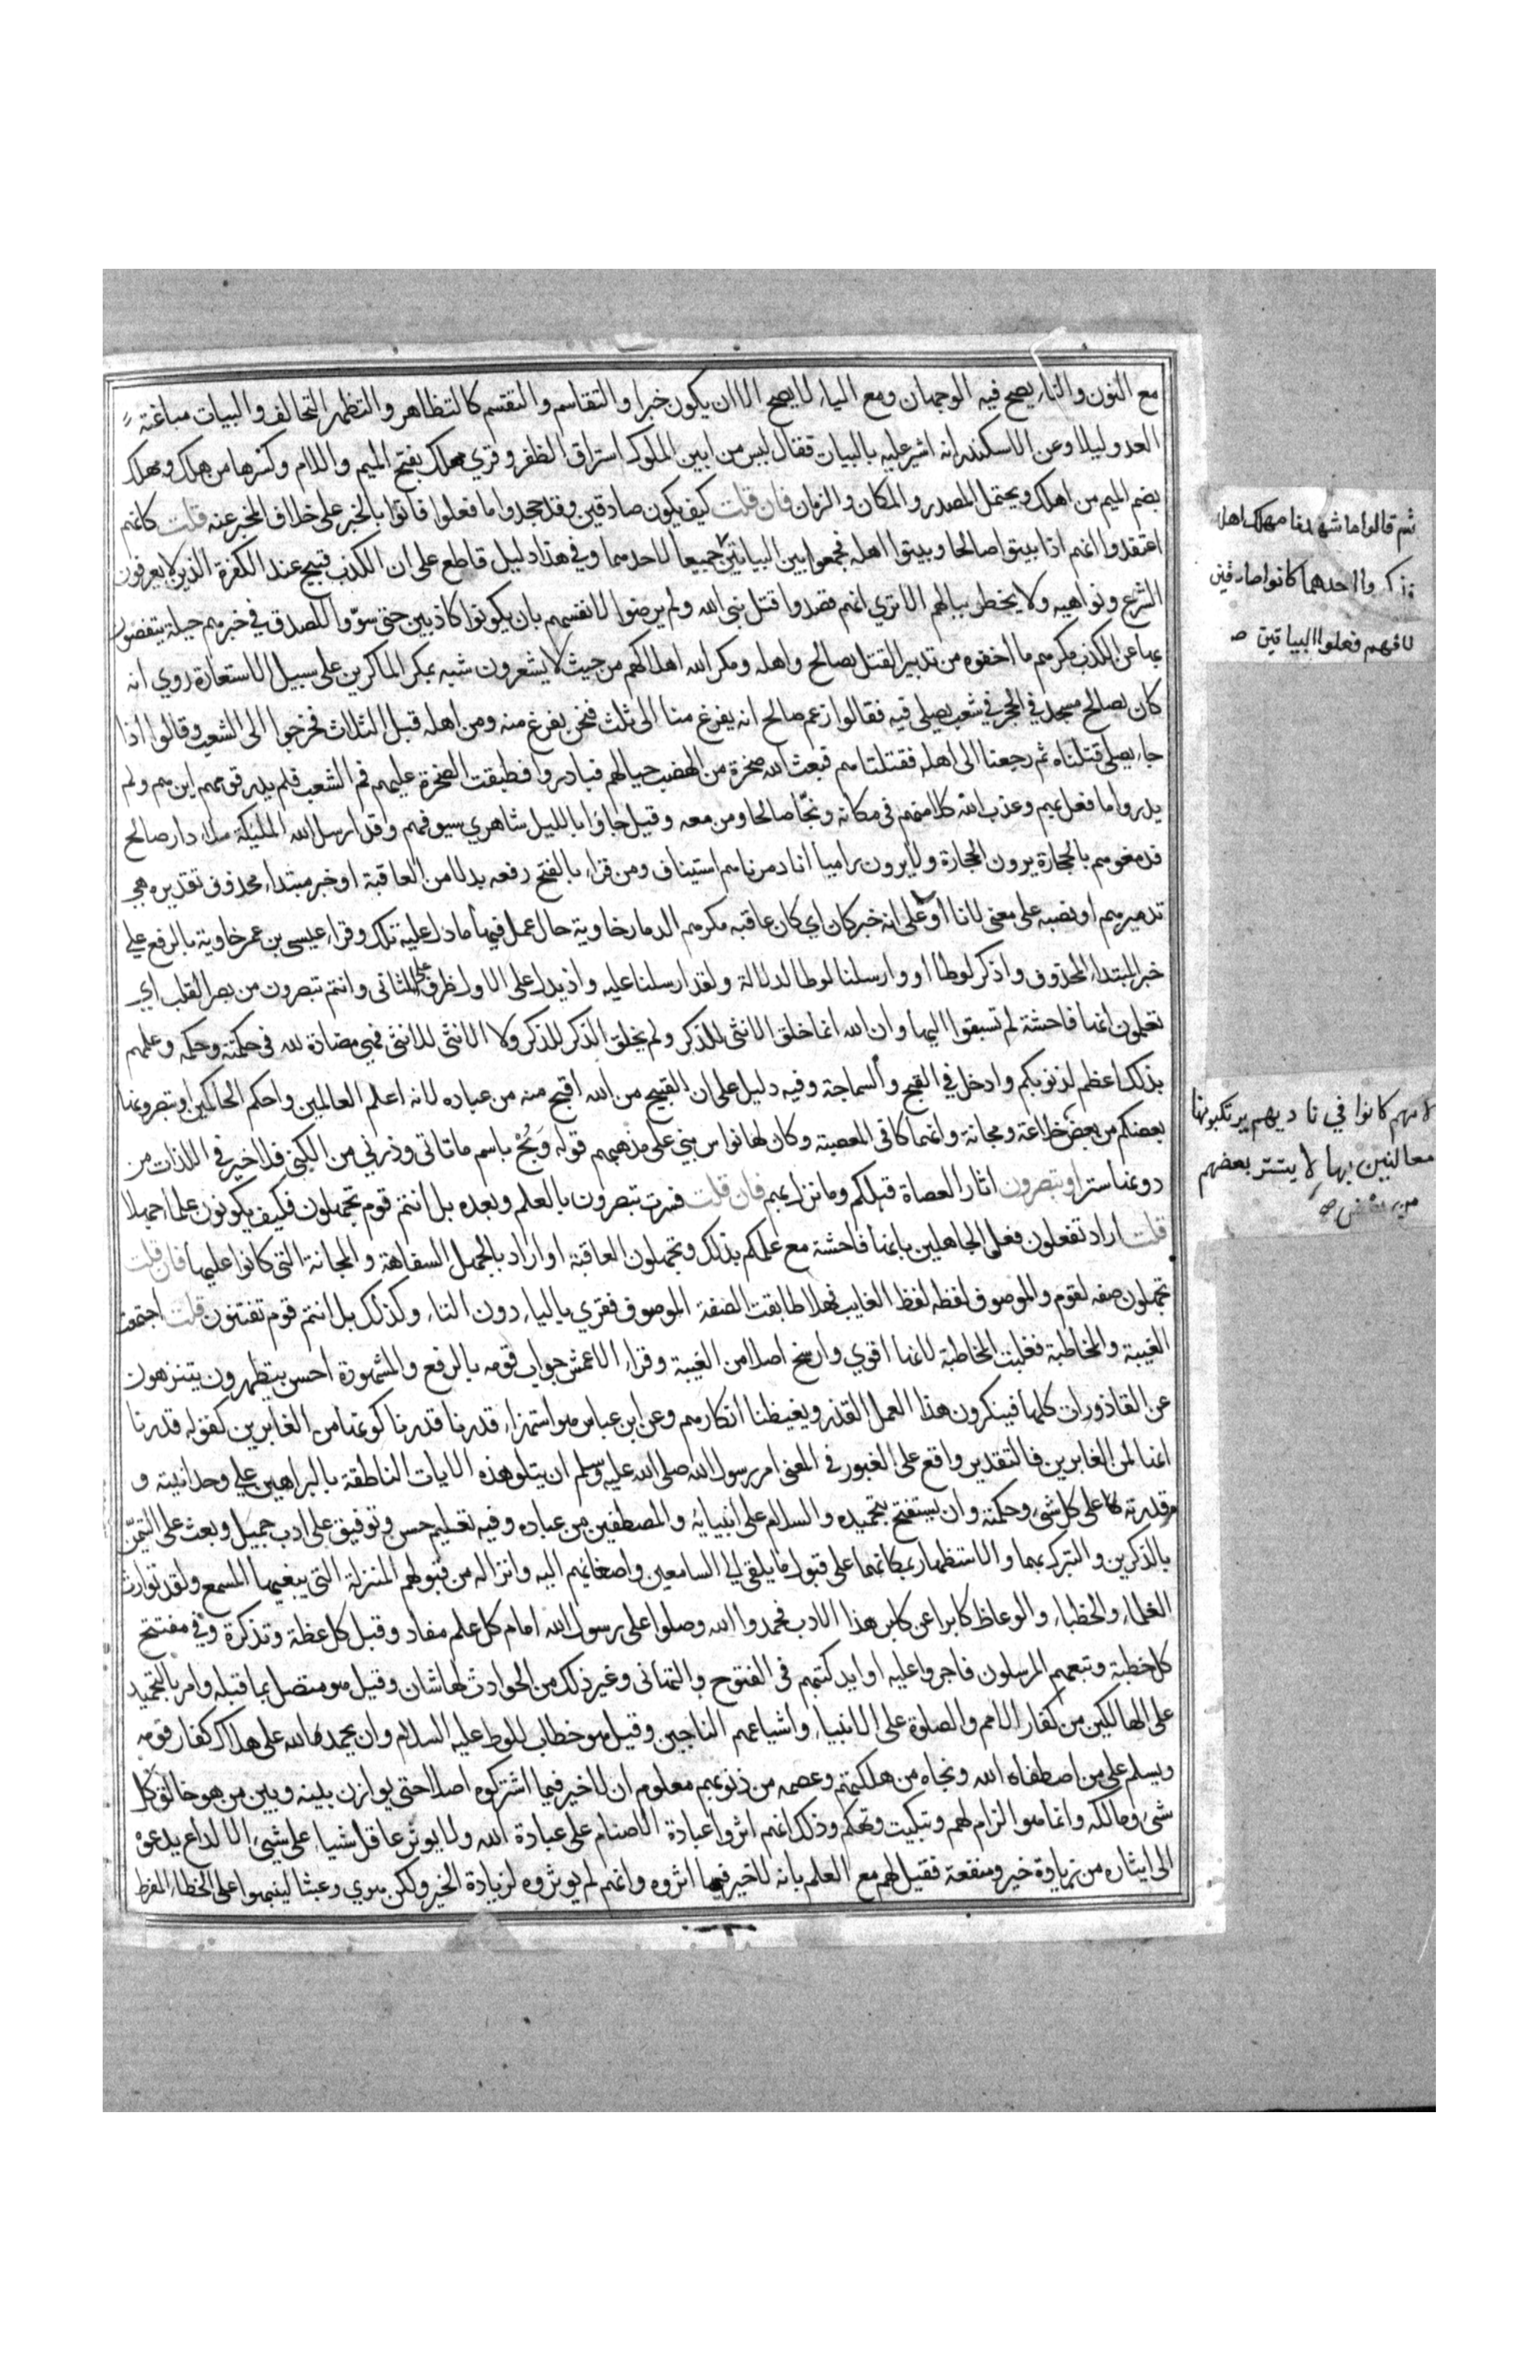 مع النون والتاء يصح فيه الوجهان ومع الياء لا يصح الا ان يكون خبرا والتقاسم والتقسم كالتظاهر والتظهر التحالف والبيات مباغتة
العدو ليلا وعن الاسكندر انه اشير عليه بالبيات فقال ليس من ايين الملوك استراق الظفر وقري مهلك بفتح الميم واللام وكسرها من هلك ومهلك
بضم الميم من اهلك ويحتمل المصدر والمكان والزمان فان قلت كيف يكون صادقين وقد جحدوا ما فعلوا فاتوا بالخبر على خلاف المخبر عنه قلت كانهم
اعتقدوا انهم اذا بيتوا صالحا وبيتوا اهله فجمعوا بين البياتين جميعا لا احدهما وفي هذا دليل قاطع على ان الكذب قبيح عند الكفرة الذين لا يعرفون
الشرع ونواهيه ولا يخطر ببالهم الا تري انهم قصدوا قتل نبي الله ولم يرضوا لانفسهم بان يكونوا كاذبين حتى سوّوا للصدق في خبرهم حيلة يتفصون
بها عن الكذب مكرهم ما اخفوه من تدبير القتل بصالح واهله ومكر الله اهلاكهم من حيث لا يشعرون شبه بمكر الماكرين على سبيل الاستعارة روي انه
كان لصالح مسجد في الحجر في شعب يصلى فيه فقالوا زعم صالح انه يفرغ منا الى ثلث فنحن نفرغ منه ومن اهله قبل الثلاث فخرجوا الى الشعب وقالوا اذا
جاء يصلى قتلناه ثم رجعنا الى اهله فقتلناهم فبعث الله صخرة من الهضب حيالهم فبادروا فطبقت الصخرة عليهم فم الشعب فلم يدر قومهم اين هم ولم
يدروا ما فعل بهم وعذب الله كلا منهم في مكانه ونجّا صالحا ومن معه وقيل جاؤا بالليل شاهري سيوفهم وقد ارسل الله المليكة ملاء دار صالح
فدمغوهم بالحجارة يرون الحجارة ولا يرون راميا انا دمرناهم استيناف ومن قراء بالفتح رفعه بدلا من العاقبة او خبر مبتداء محذوف تقديره هي
تدميرهم او نصبه على معنى لانا او على انه خبر كان اي كان عاقبه مكرهم الدمار خاوية حال عمل فيها ما دل عليه تلك وقراء عيسى بن عمر خاوية بالرفع على
خبر المبتداء المحذوف واذكر لوطا او وارسلنا لوطا لدلالة ولقد ارسلنا عليه واذ بدل على الاول ظرف على الثانى وانتم تبصرون من بصر القلب اي
تعلمون انها فاحشة لم تسبقوا اليها وان الله انما خلق الانثى للذكر ولم يخلق الذكر للذكر ولا الانثى للانثى فهي مضادة لله في حكمته وحكمه وعلمهم
بذلك اعظم لذنوبكم وادخل في القبح والسماجة وفيه دليل على ان القبيح من الله اقبح منه من عباده لانه اعلم العالمين واحكم الحاكمين او تبصرونها
بعضكم من بعض خلاعة ومجانة وانهماكا في المعصية وكان لهانواس بني على مذهبهم قوله وَبُحْ باسم ما تاتى وذرني من الكنى فلا خير في اللذات من
دونها ستر او تبصرون اثار العصاة قبلكم وما نزل بهم فان قلت فسرت تبصرون بالعلم وبعده بل انتم قوم تجهلون فكيف يكونون علماء جهلا
قلت اراد تفعلون فعل الجاهلين بانها فاحشة مع علمكم بذلك وتجهلون العاقبة او اراد بالجهل السفاهة والمجانة التى كانوا عليها فان قلت
تجهلون صفه لقوم والموصوف لفظه لفظ الغايب فهلا طابقت الصفة الموصوف فقري بالياء دون التاء وكذلك بل انتم قوم تفتنون قلت اجتمعت
الغيبة والمخاطبة فغلبت المخاطبة لانها اقوي وارسخ اصلا من الغيبة وقراء الاعمش جواب قومه بالرفع والمشهورة احسن يتطهرون يتنزهون
عن القاذورات كلها فينكرون هذا العمل القذر ويغيظنا انكارهم وعن ابن عباس هو استهزاء قدرنا قدرنا كونها من الغابرين كقوله قدرنا
انها لمن الغابرين فالتقدير واقع على الغبور في المعنى امر رسول الله صلى الله عليه وسلم ان يتلو هذه الايات الناطقة بالبراهين على وحدانيته و
قدرته على كل شئ وحكمته وان يستفتح بتحميده والسلام على انبيائه والمصطفين من عباده وفيه تعليم حسن وتوفيق على ادب جميل وبعث على التيمّن
بالذكرين والتبرك بهما والاستظهار بمكانهما على قبول ما يلقى الى السامعين واصغائهم اليه وانزاله من قبولهم المنزلة التى يبغيها المسمع ولقد توارث
العلماء والخطباء والوعاظ كابرا عن كابر هذا الادب فحمدوا الله وصلوا على رسول الله امام كل علم مفاد وقبل كل عظة وتذكرة وفي مفتتح
كل خطبة وتبعهم المرسلون فاجروا عليه اوايل كتبهم في الفتوح والتهانى وغير ذلك من الحوادث لها شان وقيل هو متصل بما قبله وامر بالتحميد
على الهالكين من كفار الامم والصلوة على الانبياء واشياعهم الناجين وقيل هو خطاب للوط عليه السلام وان يحمد الله على هلاك كفار قومه
ويسلم على من اصطفاه الله ونجاه من هلكتهم وعصمه من ذنوبهم معلوم ان لا خير فيما اشتركوه اصلا حتى يوازن بينه وبين من هو خالق كل
شئ ومالكه وانما هو الزام لهم وتبكيت وتهكم وذلك انهم اثروا عبادة الاصنام على عبادة الله ولا يوثر عاقل شياء على شيئ الا لداع يدعوه
الى ايثاره من زيادة خير ومنفعة فقيل لهم مع العلم بانه لا خير فيما اثروه وانهم لم يوثروه لزيادة الخير ولكن هوي وعبثا لينبهوا على الخطاء المفرط
ثم قالوا ما شهدنا مهلك اهله
فذكروا احدهما كانوا صادقين
لانهم فعلوا البياتين صه
لانهم كانوا في ناديهم يرتكبونها
معالنين بها لا يتستر بعضهم
من بعض صه